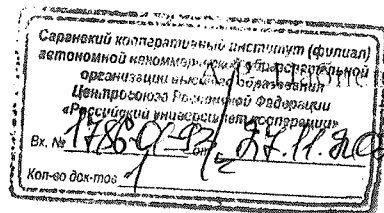 Саранский кооперативный институт (филиал)
автономной некоммерческой образовательной
организации высшего образования
Центросоюза Российской Федерации
«Российский университет кооперации»
Вх. № от 27.11.20
Кол-во док-тов 1